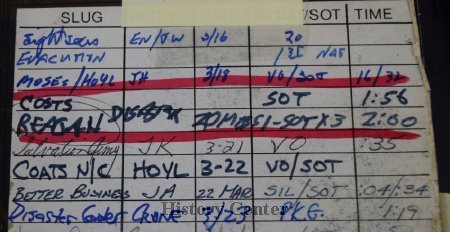 SLUG /SOT TIME
EN/JW 3/16 20
EVACUATION NAT
MOSES/HOYL JH 3/18 VO/SOT 16/32
COSTS SOT 1:56
REAGAN DISASTER SOT X 3 2:00
Salvation Army JK 3-21 VO :35
COATS N/C HOYL 3-22 VO/SOT
BETTER BUSINESS JA 22 MAR SIL/SOT :04/:34
Disaster Center CRONE 3/23 PKG. 1:19
History Center